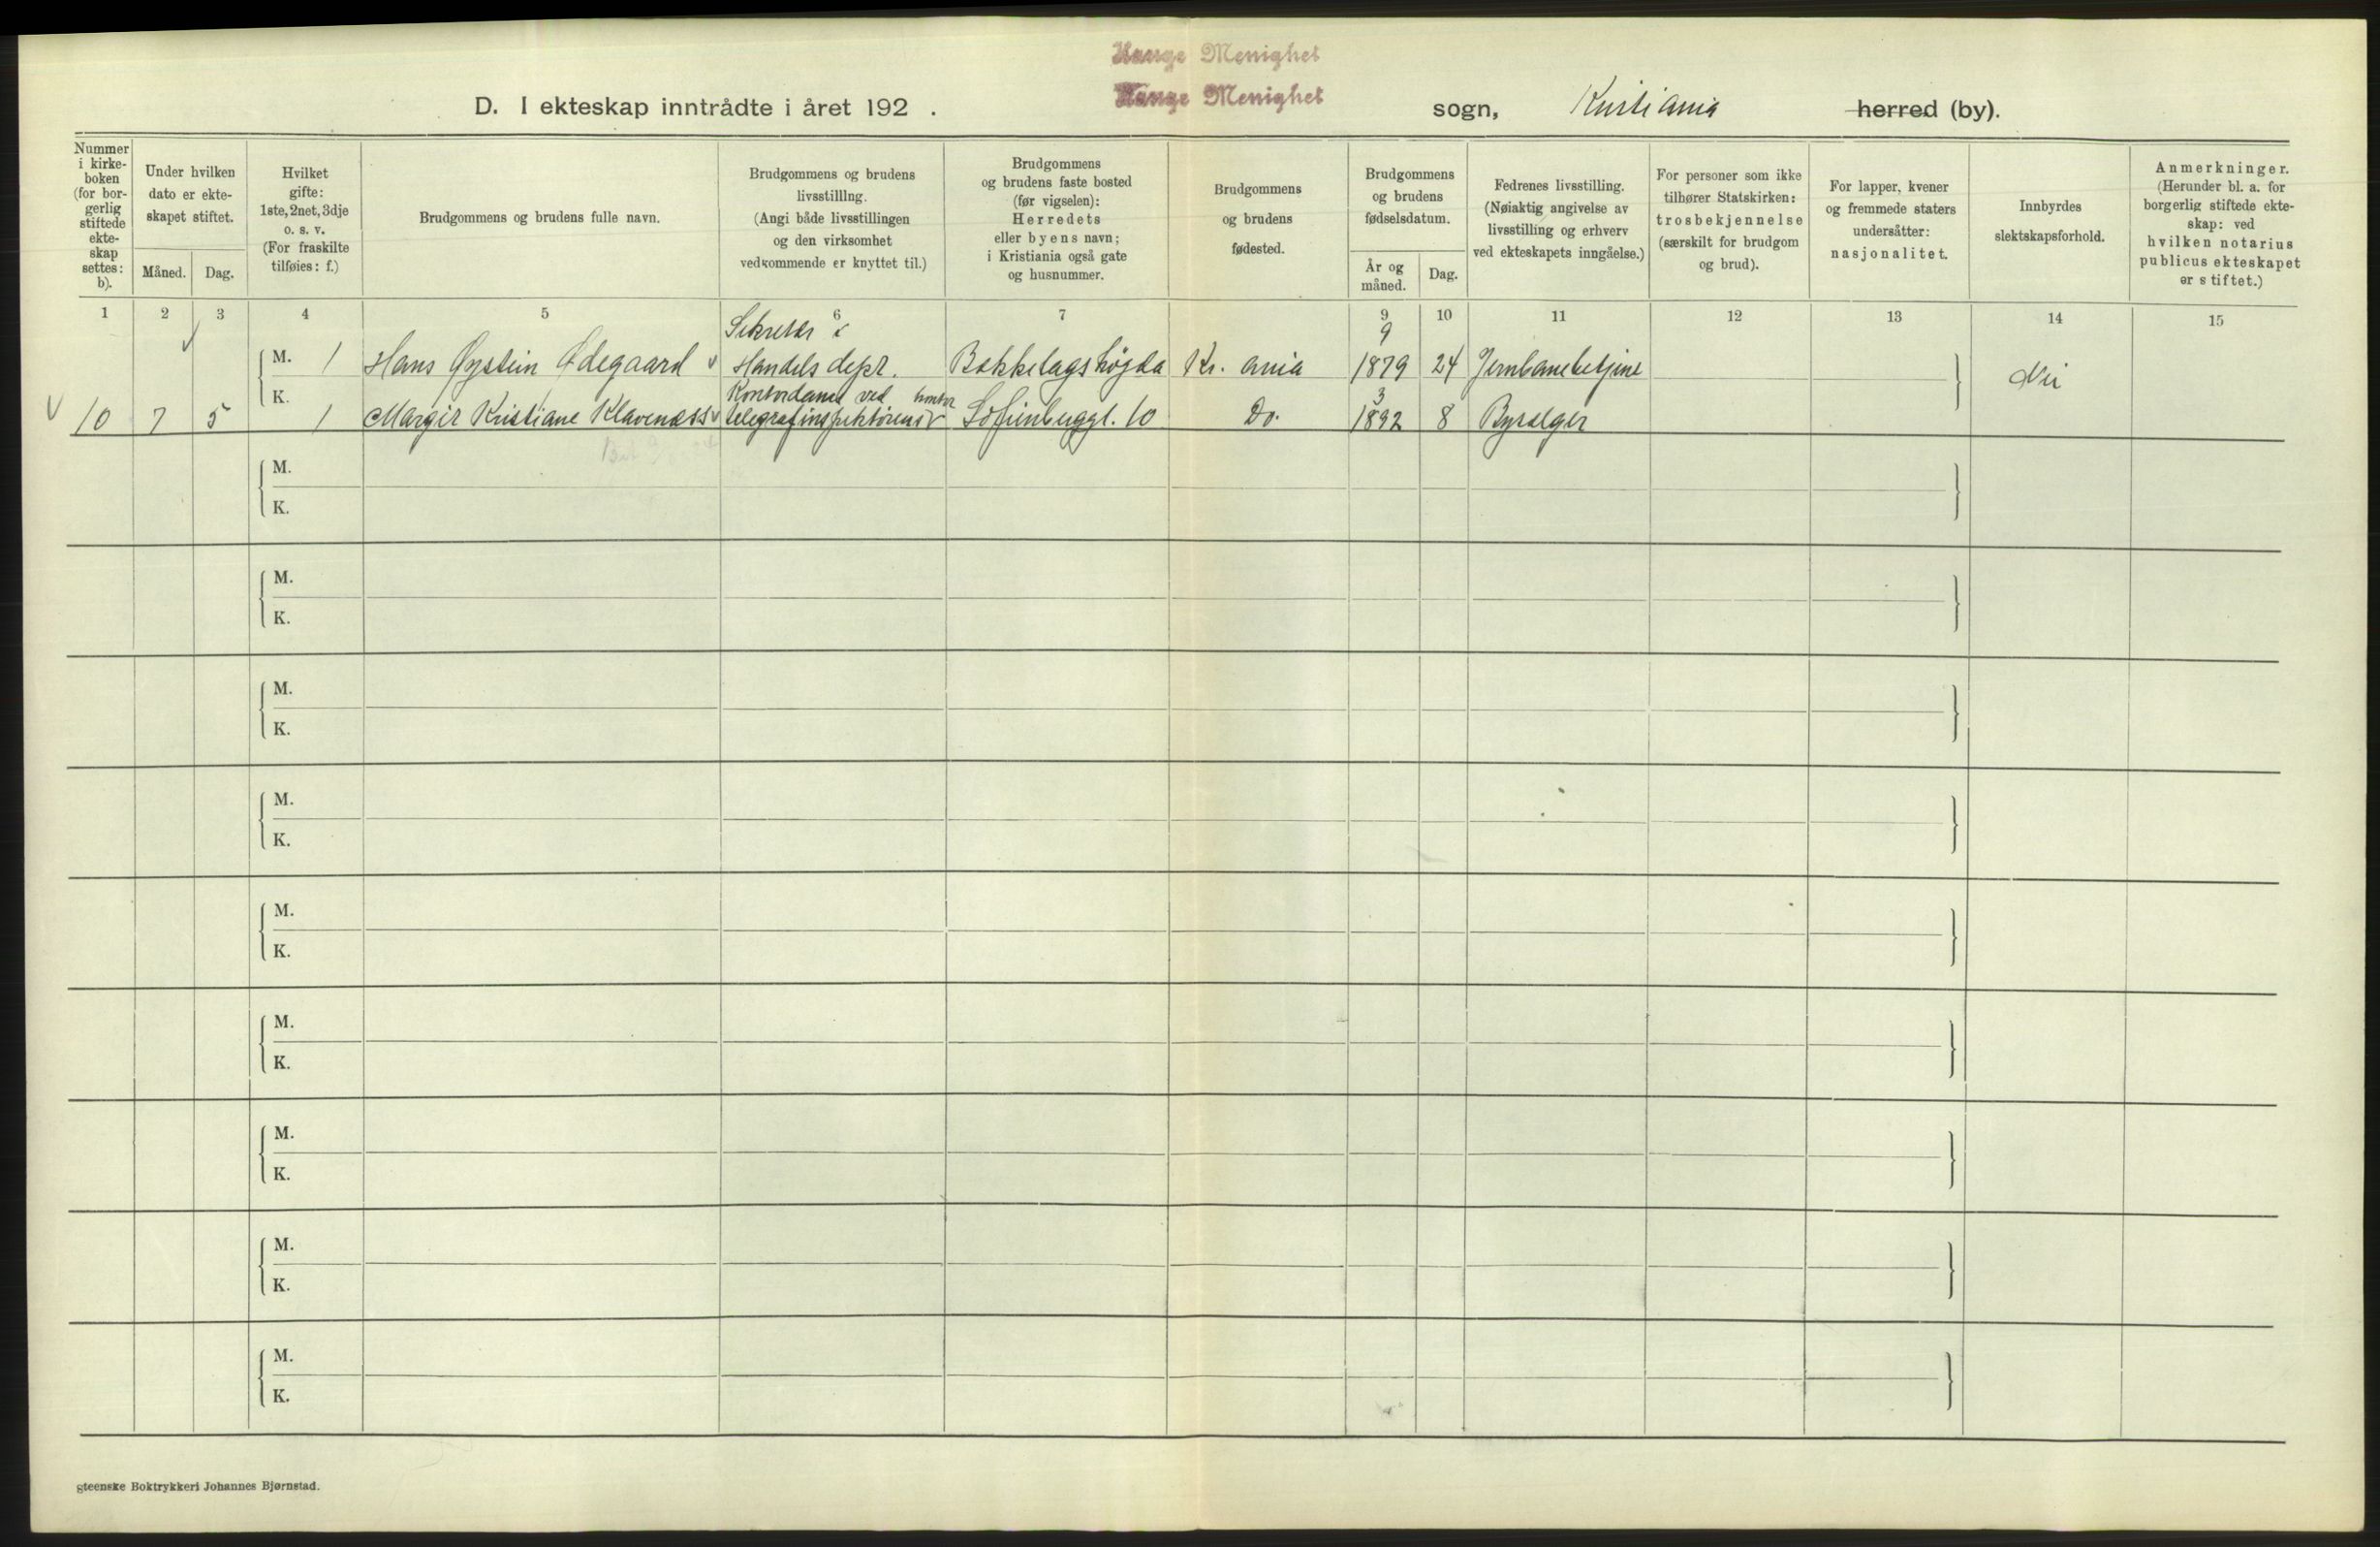 Hauge Menighet
Hauge Menighet
D. I ekteskap inntrådte i året 192 . sogn, Kristiania herred (by).
Nummer i kirke-boken (for bor-gerlig stiftede ekte-skap settes: b).
Under hvilken dato er ekte-skapet stiftet.
Måned. Dag.
Hvilket gifte: 1ste, 2net, 3dje o. s. v. (For fraskilte tilføies: f.)
Brudgommens og brudens fulle navn.
Brudgommens og brudens livsstilllng. (Angi både livsstillingen og den virksomhet vedkommende er knyttet til.)
Brudgommens og brudens faste bosted (før vigselen): Herredets eller byens navn; i Kristiania også gate og husnummer.
Brudgommens og brudens fødested.
Brudgommens og brudens fødselsdatum.
År og måned. Dag.
Fedrenes livsstilling. (Nøiaktig angivelse av livsstilling og erhverv ved ekteskapets inngåelse.)
For personer som ikke tilhører Statskirken: trosbekjennelse (særskilt for brudgom og brud).
For lapper, kvener og fremmede staters undersåtter: nasjonalitet.
Innbyrdes slektskapsforhold.
Anmerkninger. (Herunder bl. a. for borgerlig stiftede ekte-skap: ved hvilken notarius publicus ekteskapet er stiftet.)
1 2 3 4 5 6 7 9 10 11 12 13 14 15
Sekretær i 9
M. 1 Hans Øystein Ødegaard Handels dept. Bekkelagshøgda Kr. ania 1879 24 Jernbanebetjent Nei
K. Kontordame ved kontor 3
10 7 5 1 Margit Kristiane Klavenæss telegrafinspektørens Sofienberggt. 10 Do. 1892 8 Byselger
M.
K.
M.
K.
M.
K.
M.
K.
M.
K.
M.
K.
M.
K.
M.
K.
M.
K.
gteenske Boktrykkeri Johannes Bjørnstad.